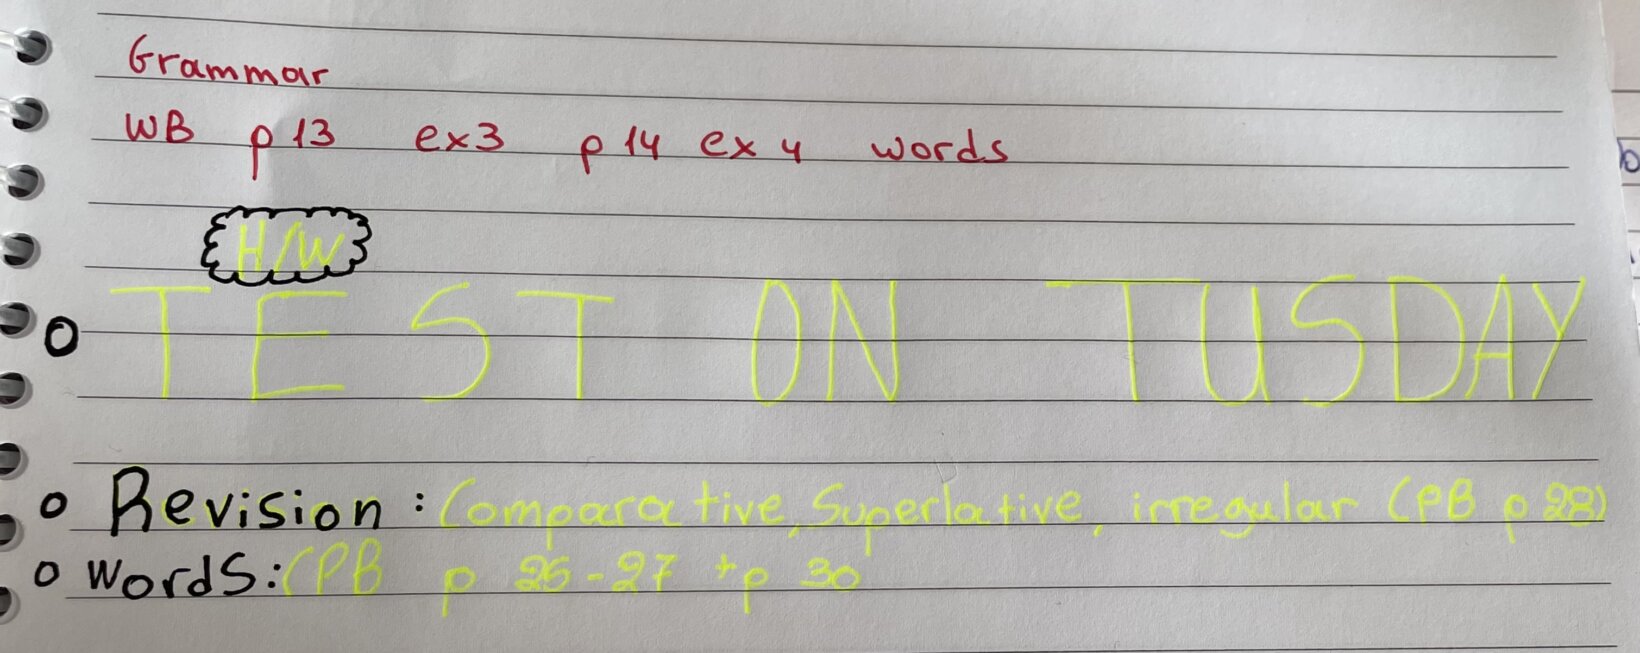 Grammar
WB p 13 ex3 p 14 ex 4 words
H/W
o TEST ON TUSDAY
o Revision: Comparative, Superlative, irregular (PB p 28)
o words: (PB p 26-27 + p 30